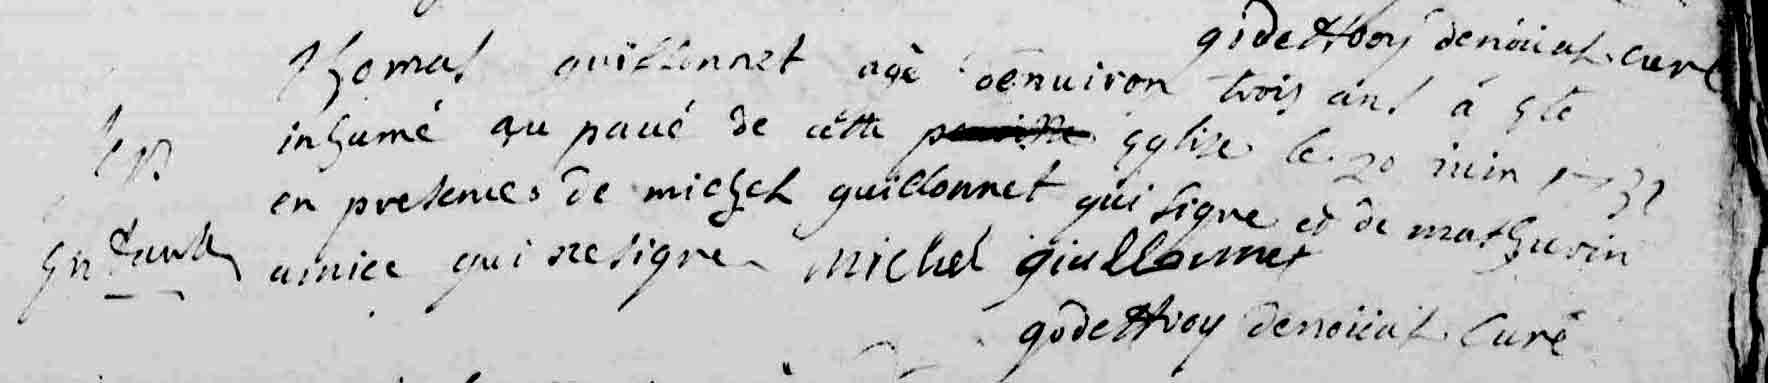 godeffroy denoüal curé
Thomas guillonnet agé denuiron trois ans á été
inhumé au paué de cette église le 20 juin 1732
en presences de michel guillonnet qui signe et de mathurin
amice qui ne signe michel guillonnet
enfant
godeffroy denoüal Curé